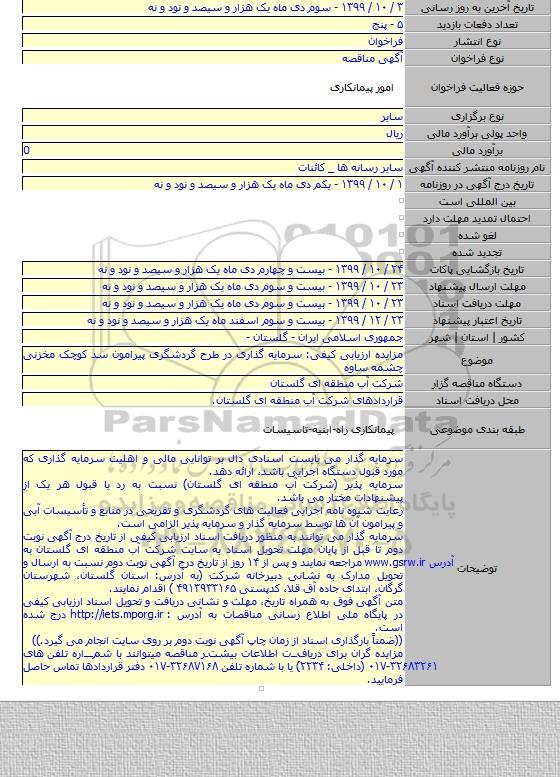 تاریخ آخرین به روز رسانی ۳ / ۱۰ / ۱۳۹۹ - سوم دی ماه یک هزار و سیصد و نود و نه
تعداد دفعات بازدید ۵ - پنج
نوع انتشار فراخوان
نوع فراخوان آگهی مناقصه
حوزه فعالیت فراخوان امور پیمانکاری
نوع برگزاری سایر
واحد پولی برآورد مالی ریال
برآورد مالی 0
نام روزنامه منتشر کننده آگهی سایر رسانه ها _ کائنات
تاریخ درج آگهی در روزنامه ۱ / ۱۰ / ۱۳۹۹ - یکم دی ماه یک هزار و سیصد و نود و نه
بین المللی است
احتمال تمدید مهلت دارد
لغو شده
تجدید شده
تاریخ بازگشایی پاکات ۲۴ / ۱۰ / ۱۳۹۹ - بیست و چهارم دی ماه یک هزار و سیصد و نود و نه
مهلت ارسال پیشنهاد ۲۳ / ۱۰ / ۱۳۹۹ - بیست و سوم دی ماه یک هزار و سیصد و نود و نه
مهلت دریافت اسناد ۲۳ / ۱۰ / ۱۳۹۹ - بیست و سوم دی ماه یک هزار و سیصد و نود و نه
تاریخ اعتبار پیشنهاد ۲۳ / ۱۲ / ۱۳۹۹ - بیست و سوم اسفند ماه یک هزار و سیصد و نود و نه
کشور | استان | شهر جمهوری اسلامی ایران - گلستان -
موضوع مزایده ارزیابی کیفی: سرمایه گذاری در طرح گردشگری پیرامون سد کوچک مخزنی
چشمه ساوه
دستگاه مناقصه گزار شرکت آب منطقه ای گلستان
محل دریافت اسناد قراردادهای شرکت آب منطقه ای گلستان.
طبقه بندی موضوعی پیمانکاری راه-ابنیه-تاسیسات
ParsNamadData
توضیحات
سرمایه گذار می بایست اسنادی دال بر توانایی مالی و اهلیت سرمایه گذاری که
مورد قبول دستگاه اجرایی باشد، ارائه دهد.
سرمایه پذیر (شرکت آب منطقه ای گلستان) نسبت به رد یا قبول هر یک از
پیشنهادات مختار می باشد.
رعایت شیوه نامه اجرایی فعالیت های گردشگری و تفریحی در منابع و تأسیسات آبی
و پیرامون آن ها توسط سرمایه گذار و سرمایه پذیر الزامی است.
سرمایه گذار می توانند به منظور دریافت اسناد ارزیابی کیفی از تاریخ درج آگهی نوبت
دوم تا قبل از پایان مهلت تحویل اسناد به سایت شرکت آب منطقه ای گلستان به
آدرس www.gsrw.ir مراجعه نمایند و پس از ۱۴ روز از تاریخ درج آگهی نوبت دوم نسبت به ارسال و
تحویل مدارک به نشانی دبیرخانه شرکت (به آدرس: استان گلستان، شهرستان
گرگان، ابتدای جاده آق قلا، کدپستی ۴۹۱۳۹۳۳۱۶۵ ) اقدام نمایند.
متن آگهی فوق به همراه تاریخ، مهلت و نشانی دریافت و تحویل اسناد ارزیابی کیفی
در پایگاه ملی اطلاع رسانی مناقصات به آدرس : http://iets.mporg.ir درج شده
است.
((ضمناً بارگذاری اسناد از زمان چاپ آگهی نوبت دوم بر روی سایت انجام می گیرد.))
مزایده گران برای دریافت اطلاعات بیشتر مناقصه میتوانند با شماره تلفن های
۰۱۷-۳۲۶۸۳۲۶۱ (داخلی: ۲۲۳۴) یا با شماره تلفن ۳۲۶۸۷۱۶۸-۰۱۷ دفتر قراردادها تماس حاصل
فرمایید.